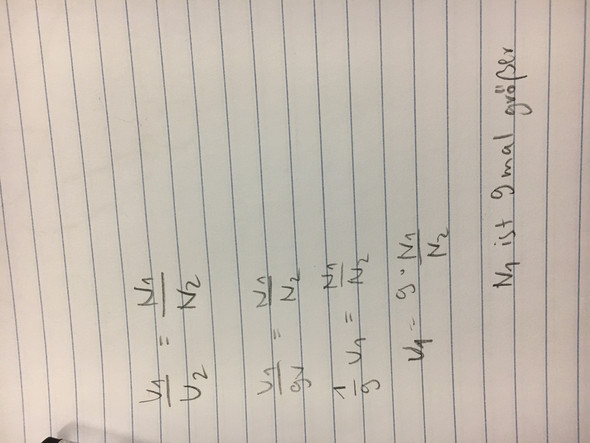 U1/U2 = N1/N2
U1/9V = N1/N2
1/9 U1 = N1/N2
U1 = 9 · N1/N2
N1 ist 9 mal größer